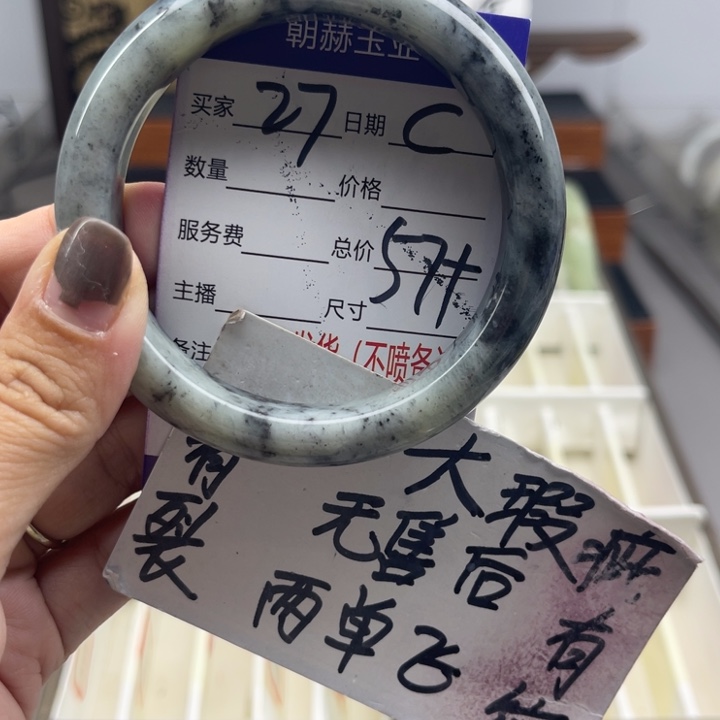 朝赫玉业
买家 27 日期 C
数量 价格
服务费 总价
主播 尺寸 57+
备注 发货（不喷备）
有裂
大瑕疵
无售后 有
两单飞